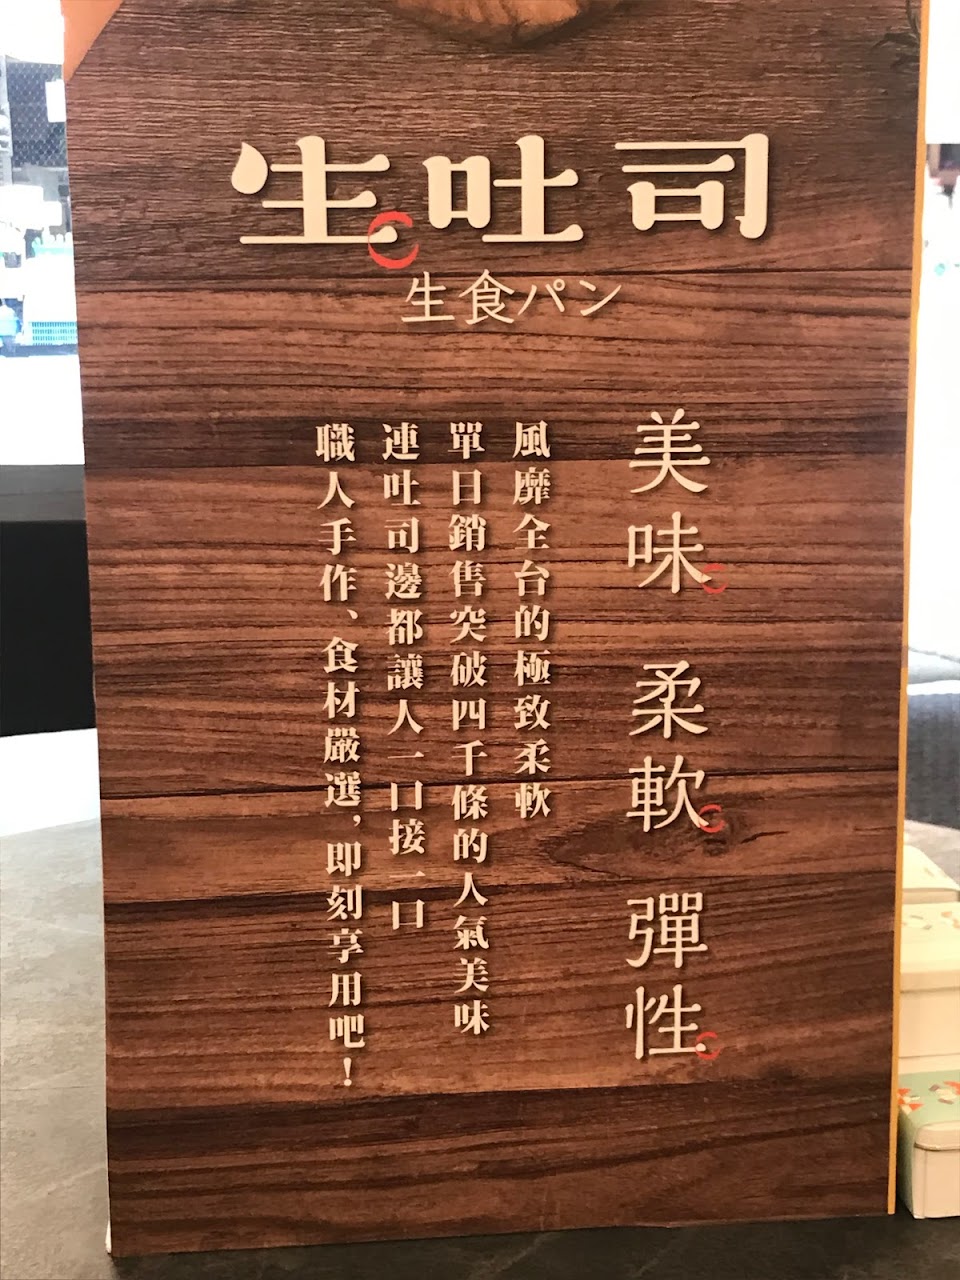 生吐司
生食パン
美味 柔軟 彈性
風靡全台的極致柔軟
單日銷售突破四千條的人氣美味
連吐司邊都讓人一口接一口
職人手作、食材嚴選，即刻享用吧！